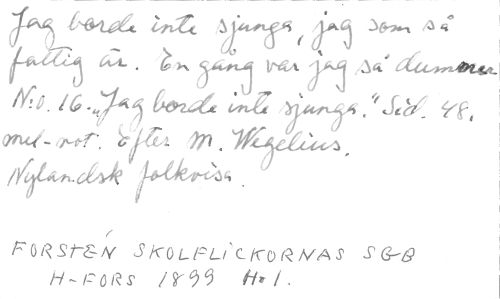 Jag borde inte sjunga, jag som så
fattig är. En gång var jag så dummer
N:o. 16. "Jag borde inte sjunga." Sid. 48.
mel-not. Efter M. Wegelius.
Nylandsk folkvisa.
FORSTÉN SKOLFLICKORNAS SGB
H-FORS 1899 H:1.